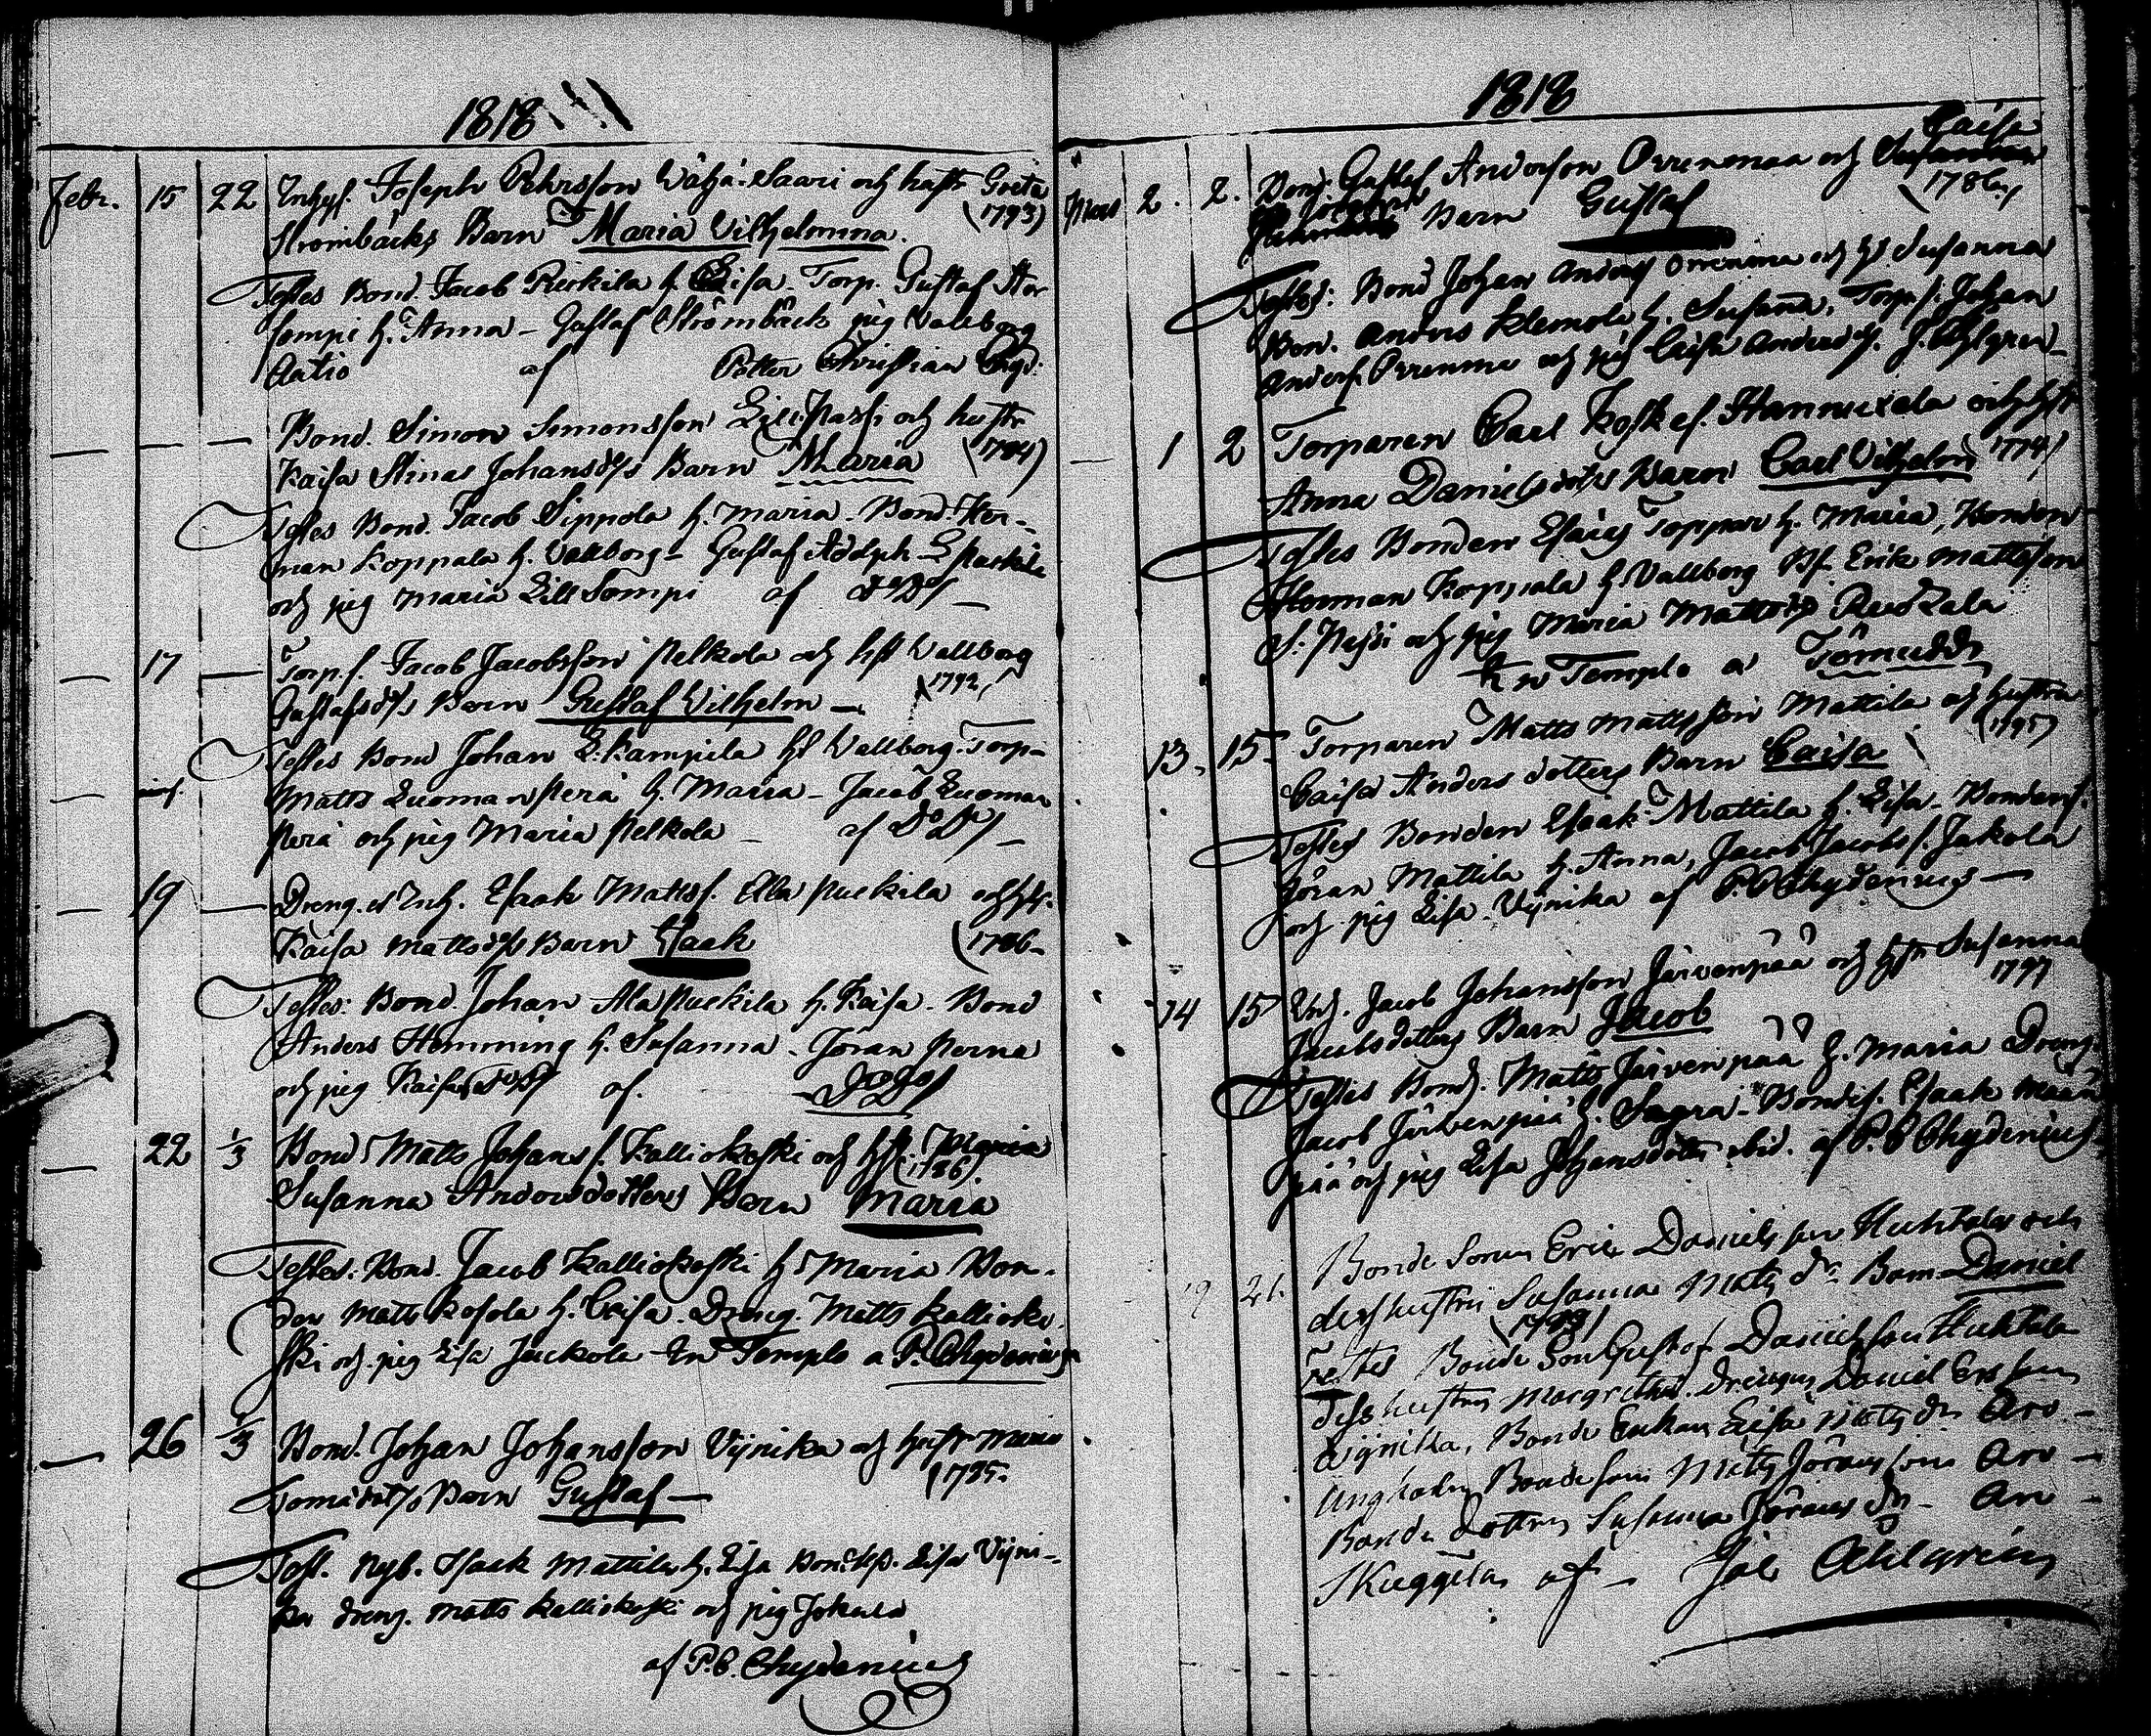 1818
Febr. 15 22 Inhys. Joseph Pehrsson Wähä-Saari och hustr Greta
(1793)
Strömbäcks Barn Maria Vilhelmina.
Testes Bond. Jacob h. Lisa. Torp. Gustaf Stor
sompi h. Anna - Gustaf Strömbäck pig Vallborg
Antio af Petter Christian Chyd:
— — Bond. Simon Simonsson Lill Passi och hustr
Kaisa Stinas Johansdrs Barn Maria (1784)
Testes Bond. Jacob Sippola h. Maria - Bond. Her-
man Koppala h. Vallborg - Gustaf Adolph
och pig Maria Lill Sompi af
— 17 — Torp. s. Jacob Jacobsson Pelkola och hst Vallborg
(1792)
Gustafsdrs Barn Gustaf Vilhelm —
Testes Bond Johan L. Kampila hst Vallborg. Torp-
Matts Luoman Perä h. Maria - Jacob Luoman
Perä och pig Maria Pelkola — af Do Do —
— 19 — Dreng. Inh. Esaak Mattss. Ella Puckila och hst.
Kaisa Mattsdrs Barn Esaak (1786—
Testes: Bond. Johan Ala Puckila h. Kaisa. Bond
Anders Hemming h. Susanna - Jöran Perna
och pig Kaisa af. Do Do
— 22 1/3 Bond Matts Johans s. Kalliokoski och hst.
(1786)
Susanna Andersdotters Barn Maria
Testes. Bond. Jacob Kalliokoski hst Maria Bon-
den Matts Kosola h. Caisa. Dreng. Matts Kallioko-
ski och pig Lisa Jackola In Templo a P. Chydenius
— 26 1/3 Bond. Johan Johansson Vijnika och hustr Maria
(1795.
Tomasdotrs Barn Gustaf —
Test. Nyb. Isaak Mattila h. Lisa Lisa Vijni-
ka dreng. Matts Kalliokoski och pig Johanna
af P.C. Chydenius
1818
Mars 2. 2. Bond. Gustaf Anderson Orrenmaa och Caisa
(1786)
Barn Gustaf
Testes: Bond Johan Anders Orrenmaa och hst Susanna
Bon. Anders Klemola h. Susanna, Torp. s. Johan
Anders Orrenmaa och pig Caisa Andersdr. J. Ahlgren —
— 1 2 Torparen Carl Koskes. Hannuxela och hst
Anna Danielsdotrs Barn Carl Vilhelm 1774)
Testes Bonden Esaias Toppari h. Maria, Bonden
Herman Koppala h. Vallborg Bs. Erik Mattsson
och pig Maria Mattsdr
In Templo a Tömudd
13. 15. Torparen Matts Mattsson Mattila och hustru
(1795)
Caisa Anders dotters Barn Caisa
Testes Bonden Esaak Mattila h. Lisa - Bondens.
Jöran Mattila h. Anna, Jacob Jacobs s. Jakola
och pig Lisa Vijnika af P. C. Chydenius —
14 15 Jacob Johansson Järvenpää och hstr Susanna
1797
Jacobsdotters Barn Jacob
Testes Bond. Matts Järvenpää h. Maria Dreng
Jacob Järvenpää h. Sagra - Bondes. Esaak
pää och pig Lisa Johansdotter ibid. af P. C. Chydenius
19 21. Bonde Sonen Eric Danielsson Huhtala och
dess hustru Susanna Matts dr Barn Daniel
(1799)
Testes Bonde Son Gustaf Danielsson Huhtala
dess hustru Margretha. Drengen Daniel Ersson
Wijnikka, Bonde Enkan Lisa Matts dr Aro —
Ungkarlen Bonde Son Matts Jöransson Aro —
Bonde dottren Susanna Jörans dr — Aro —
Skuggila af — Joh Ahlgren